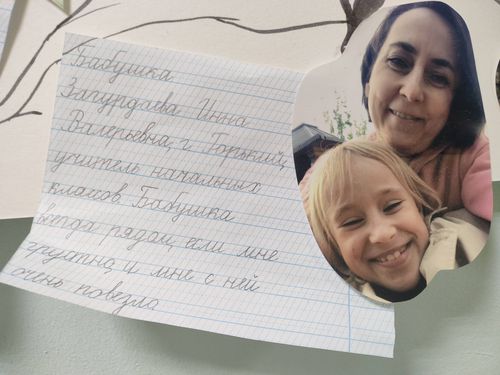 Бабушка
Загурдаева Инна
Валерьевна, г. Горький,
учитель начальных
классов. Бабушка
всегда рядом, если мне
грустно, и мне с ней
очень повезло